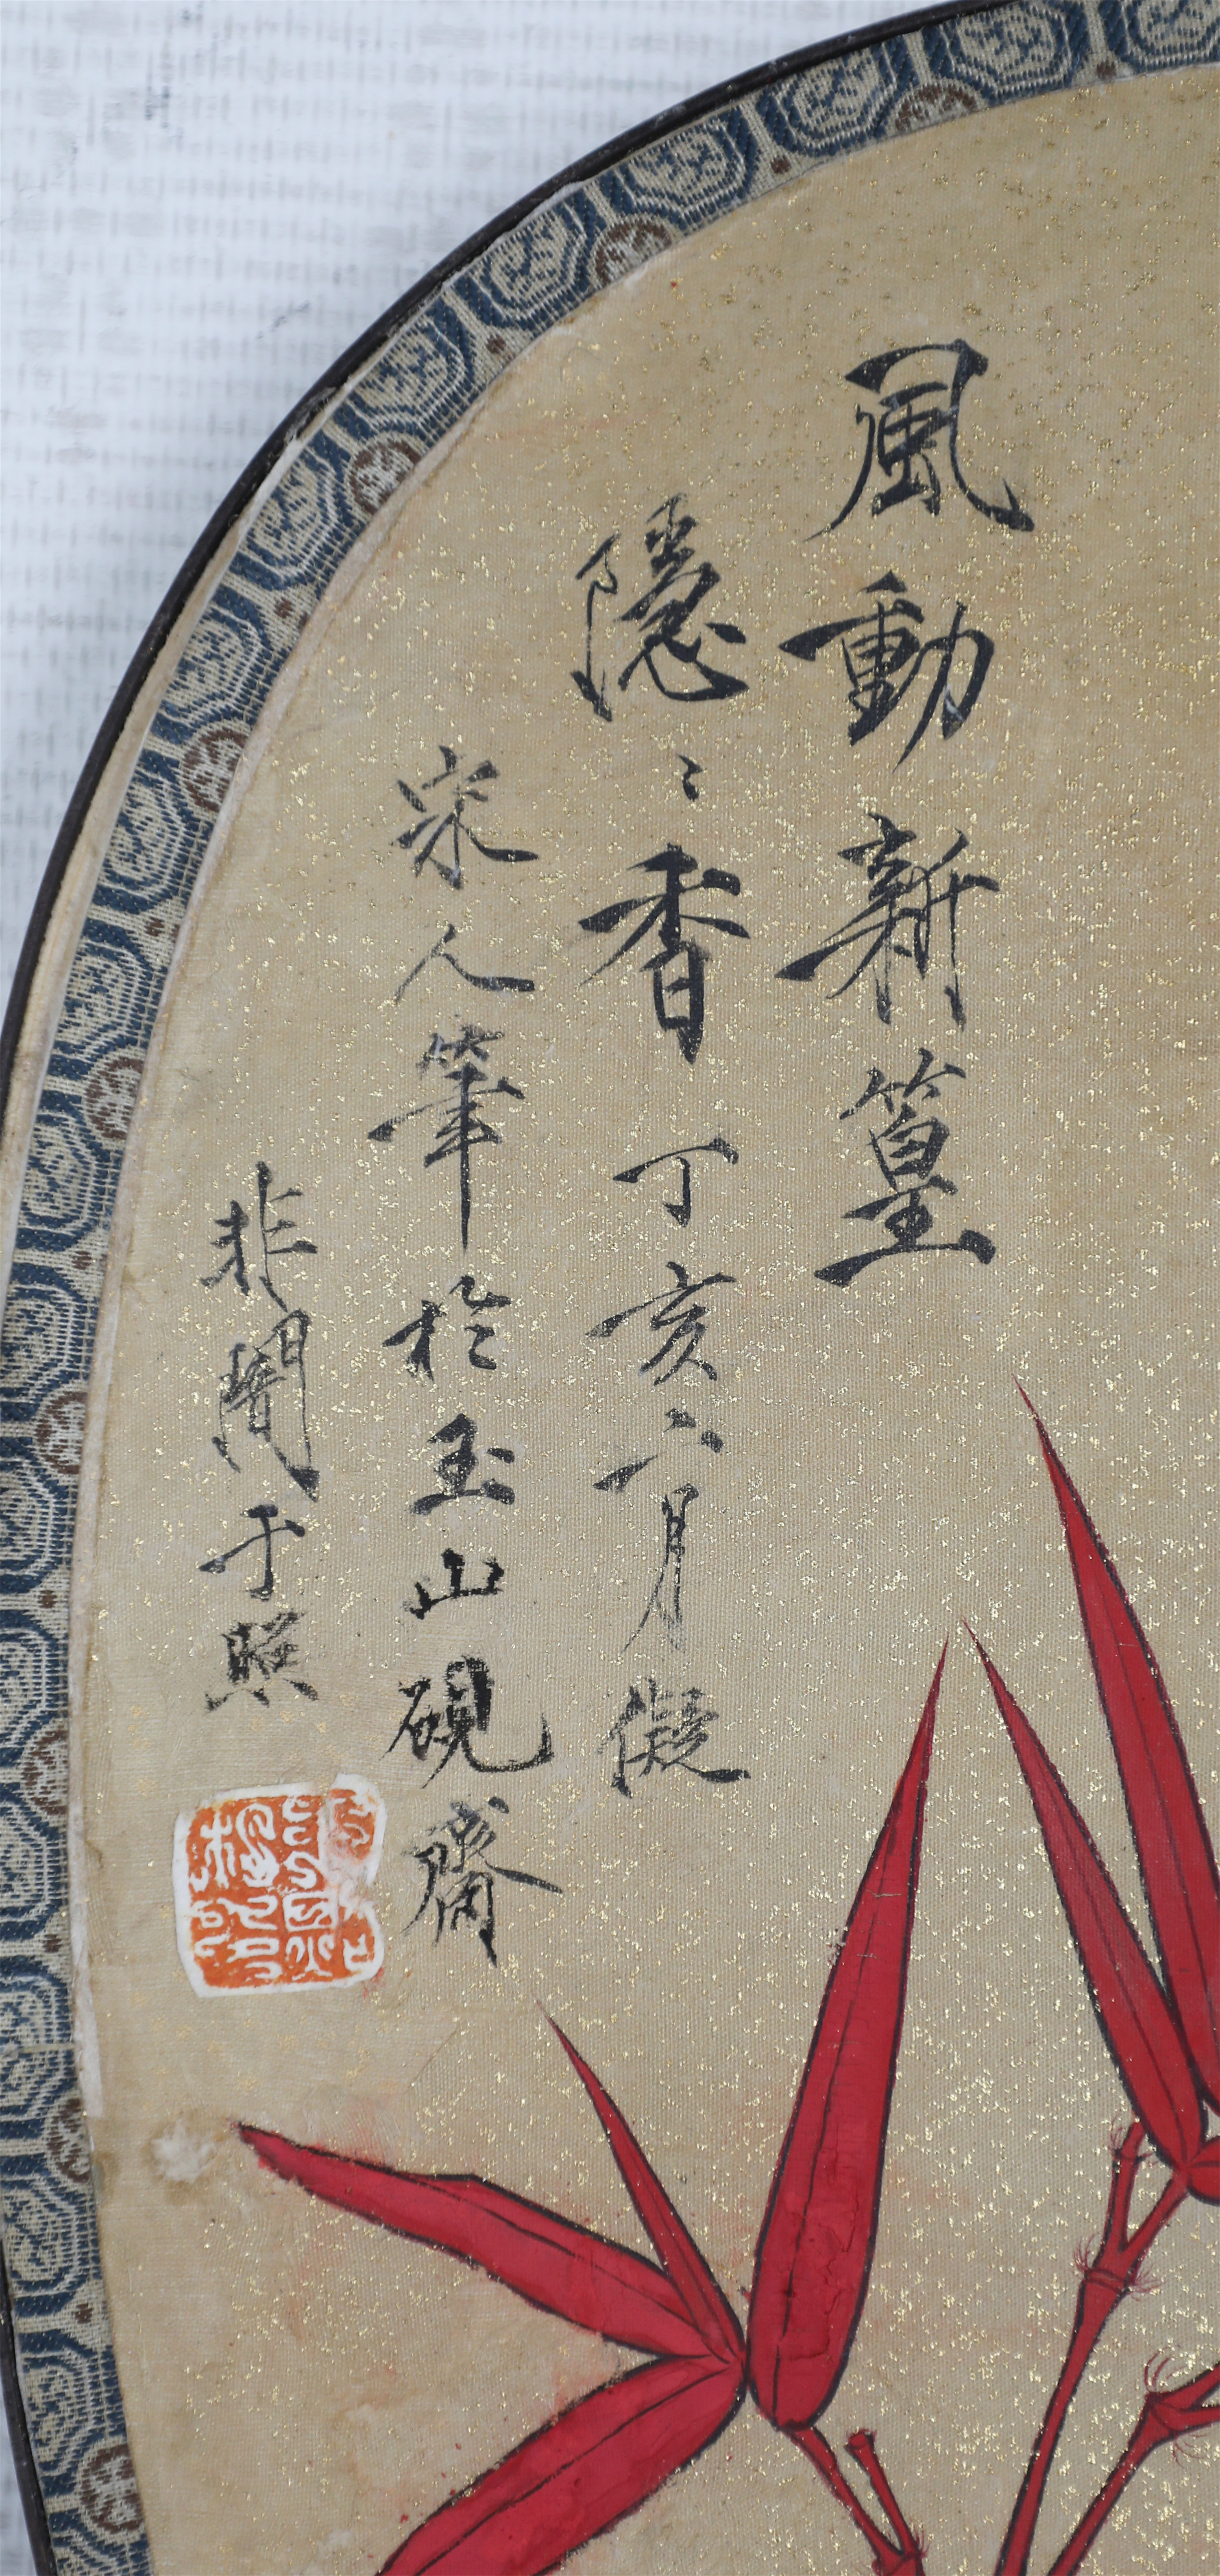 風動新篁
隱〻香丁亥六月儗
宋人筆於玉山硯齋
非闇于照